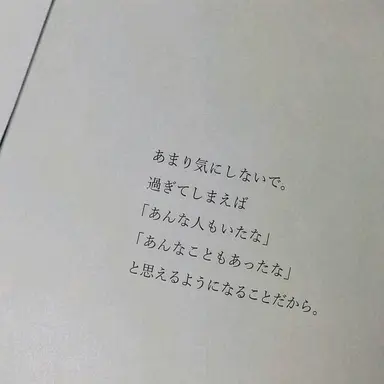 あまり気にしないで。
過ぎてしまえば
「あんな人もいたな」
「あんなこともあったな」
と思えるようになることだから。